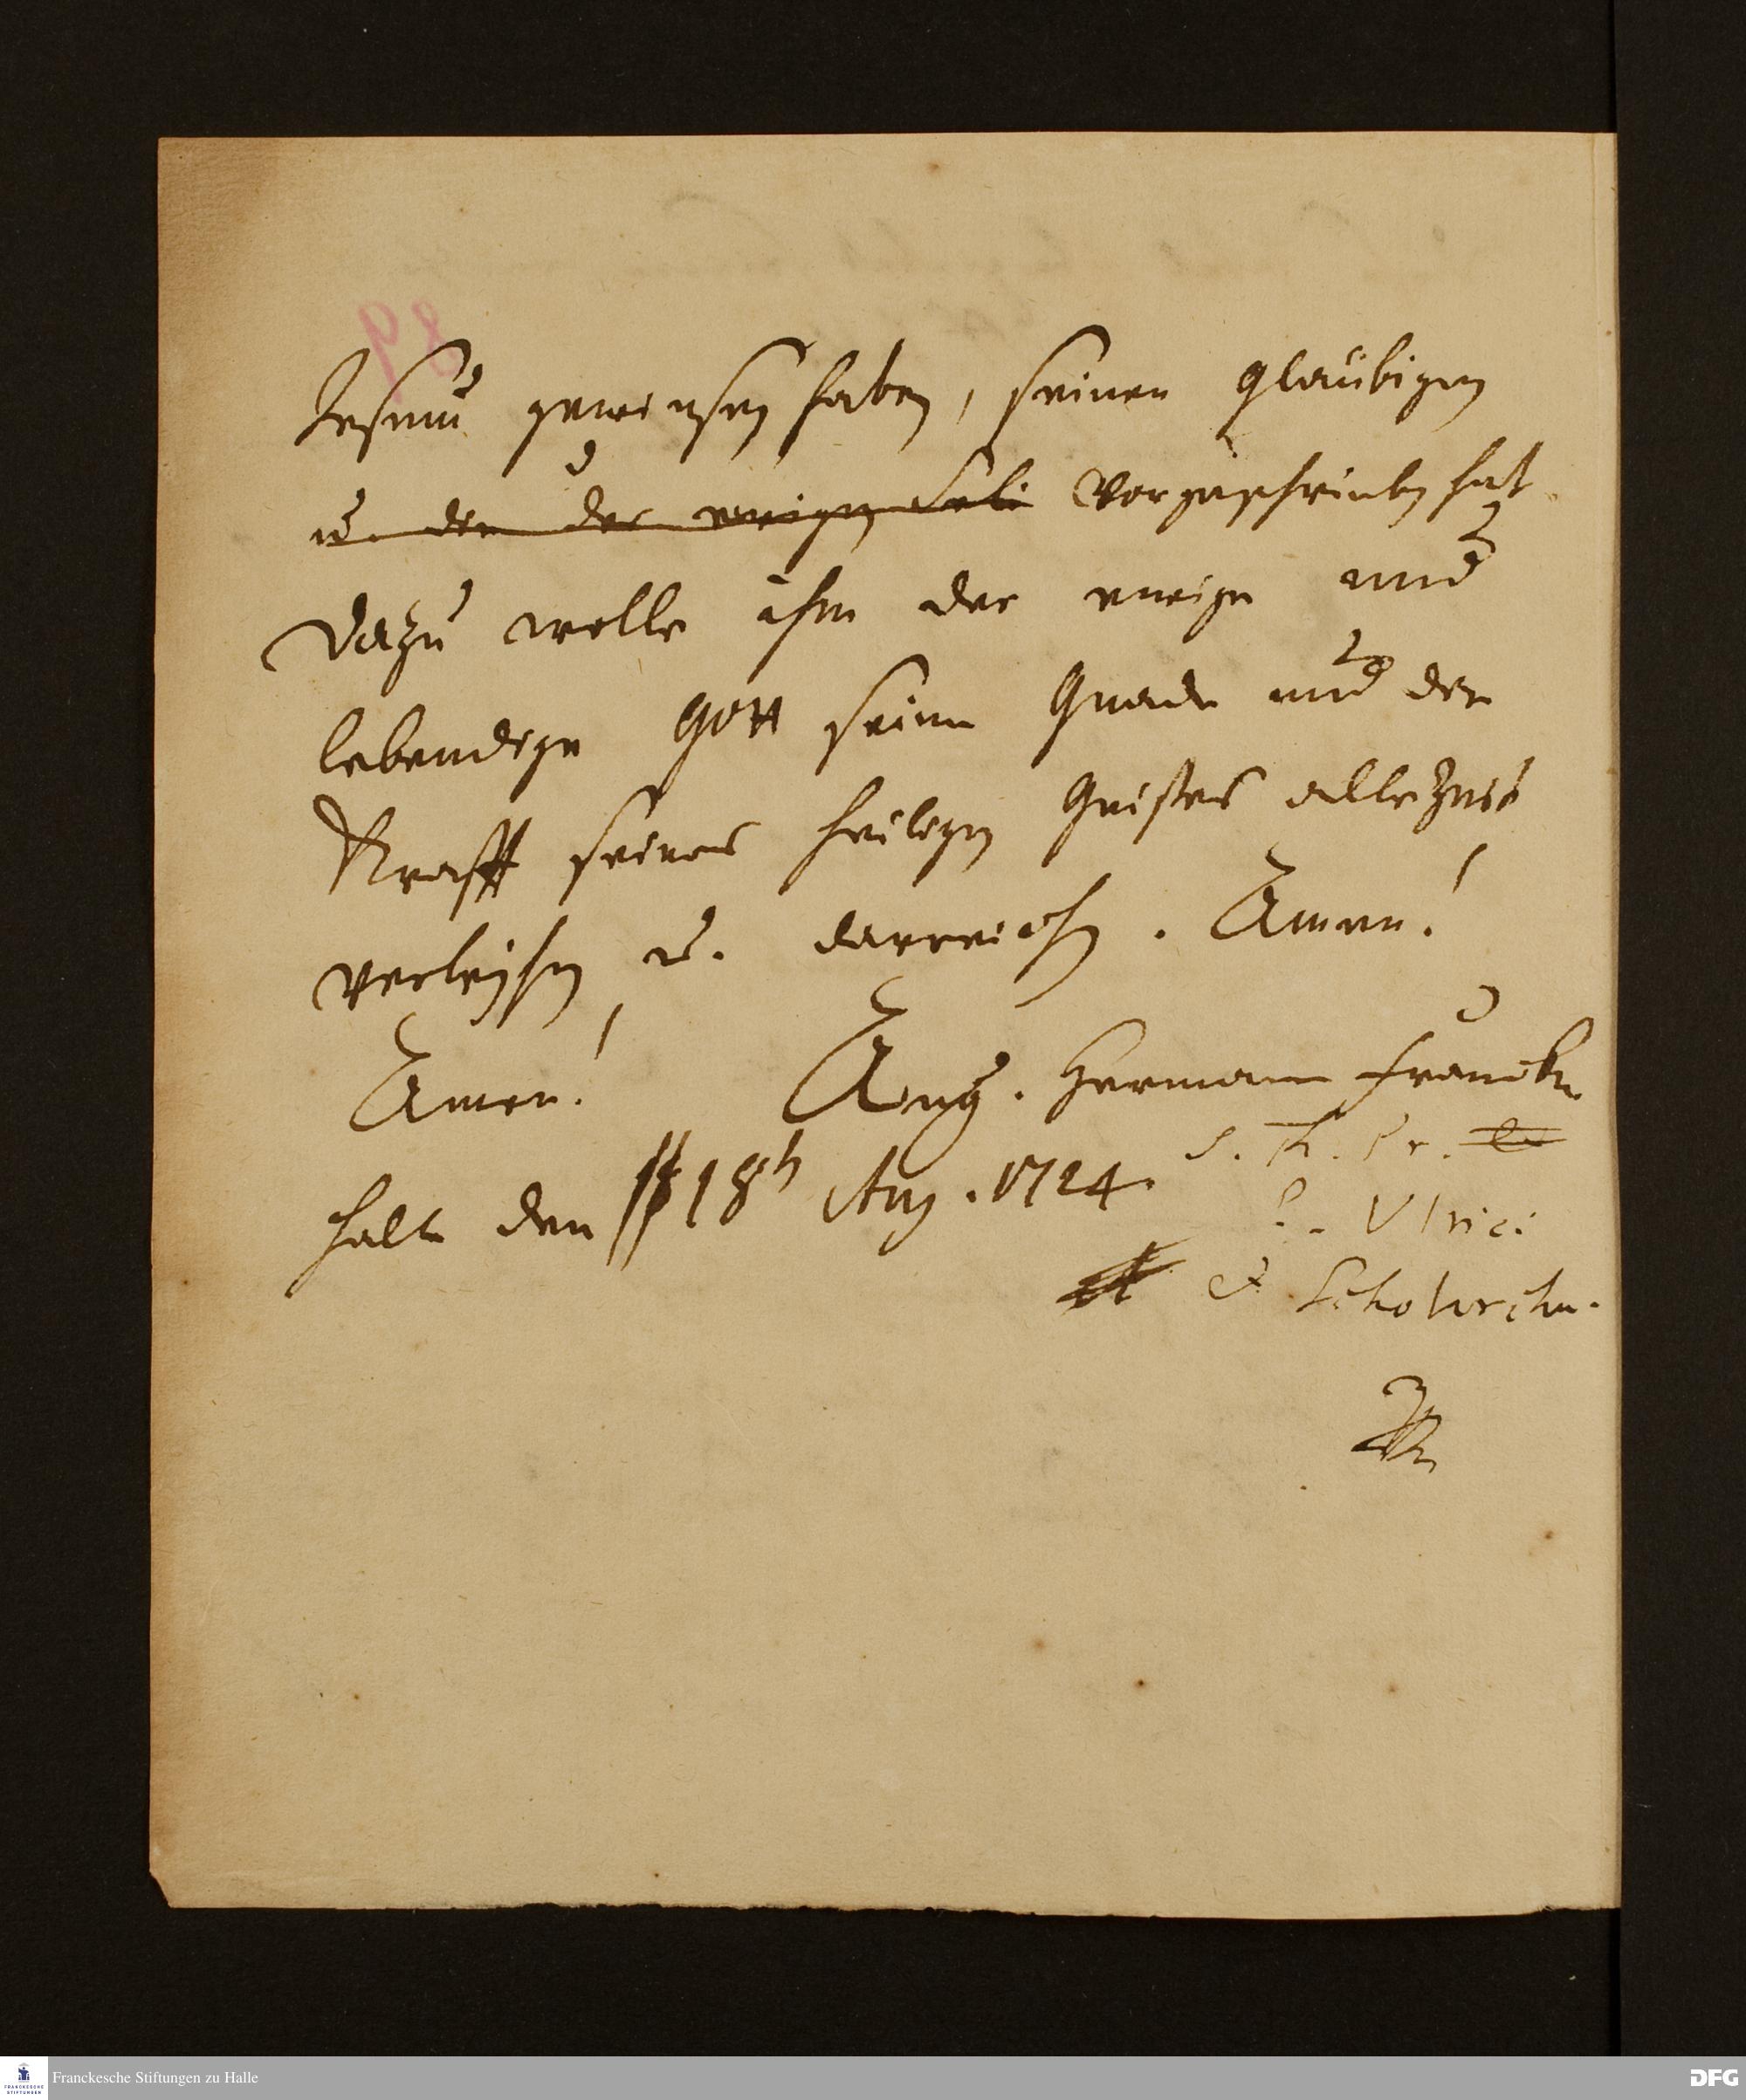 Jesum gewiesen haben, seinen gläubigen
u. den der ewigen Seli vorgeschrieben hat
Dazu wolle ihm der ewige und
lebendige Gott seine Gnade und die
Krafft seines heiligen Geistes allezeit
verleyhen u. darreichen. Amen!
Amen! Aug. Hermann Francke
S. Th. Pr.
Halle den 18t Aug. 1724.
P. Ulrici
et Scholarcha.
89
Franckesche Stiftungen zu Halle
FRANCKESCHE STIFTUNGEN
DFG